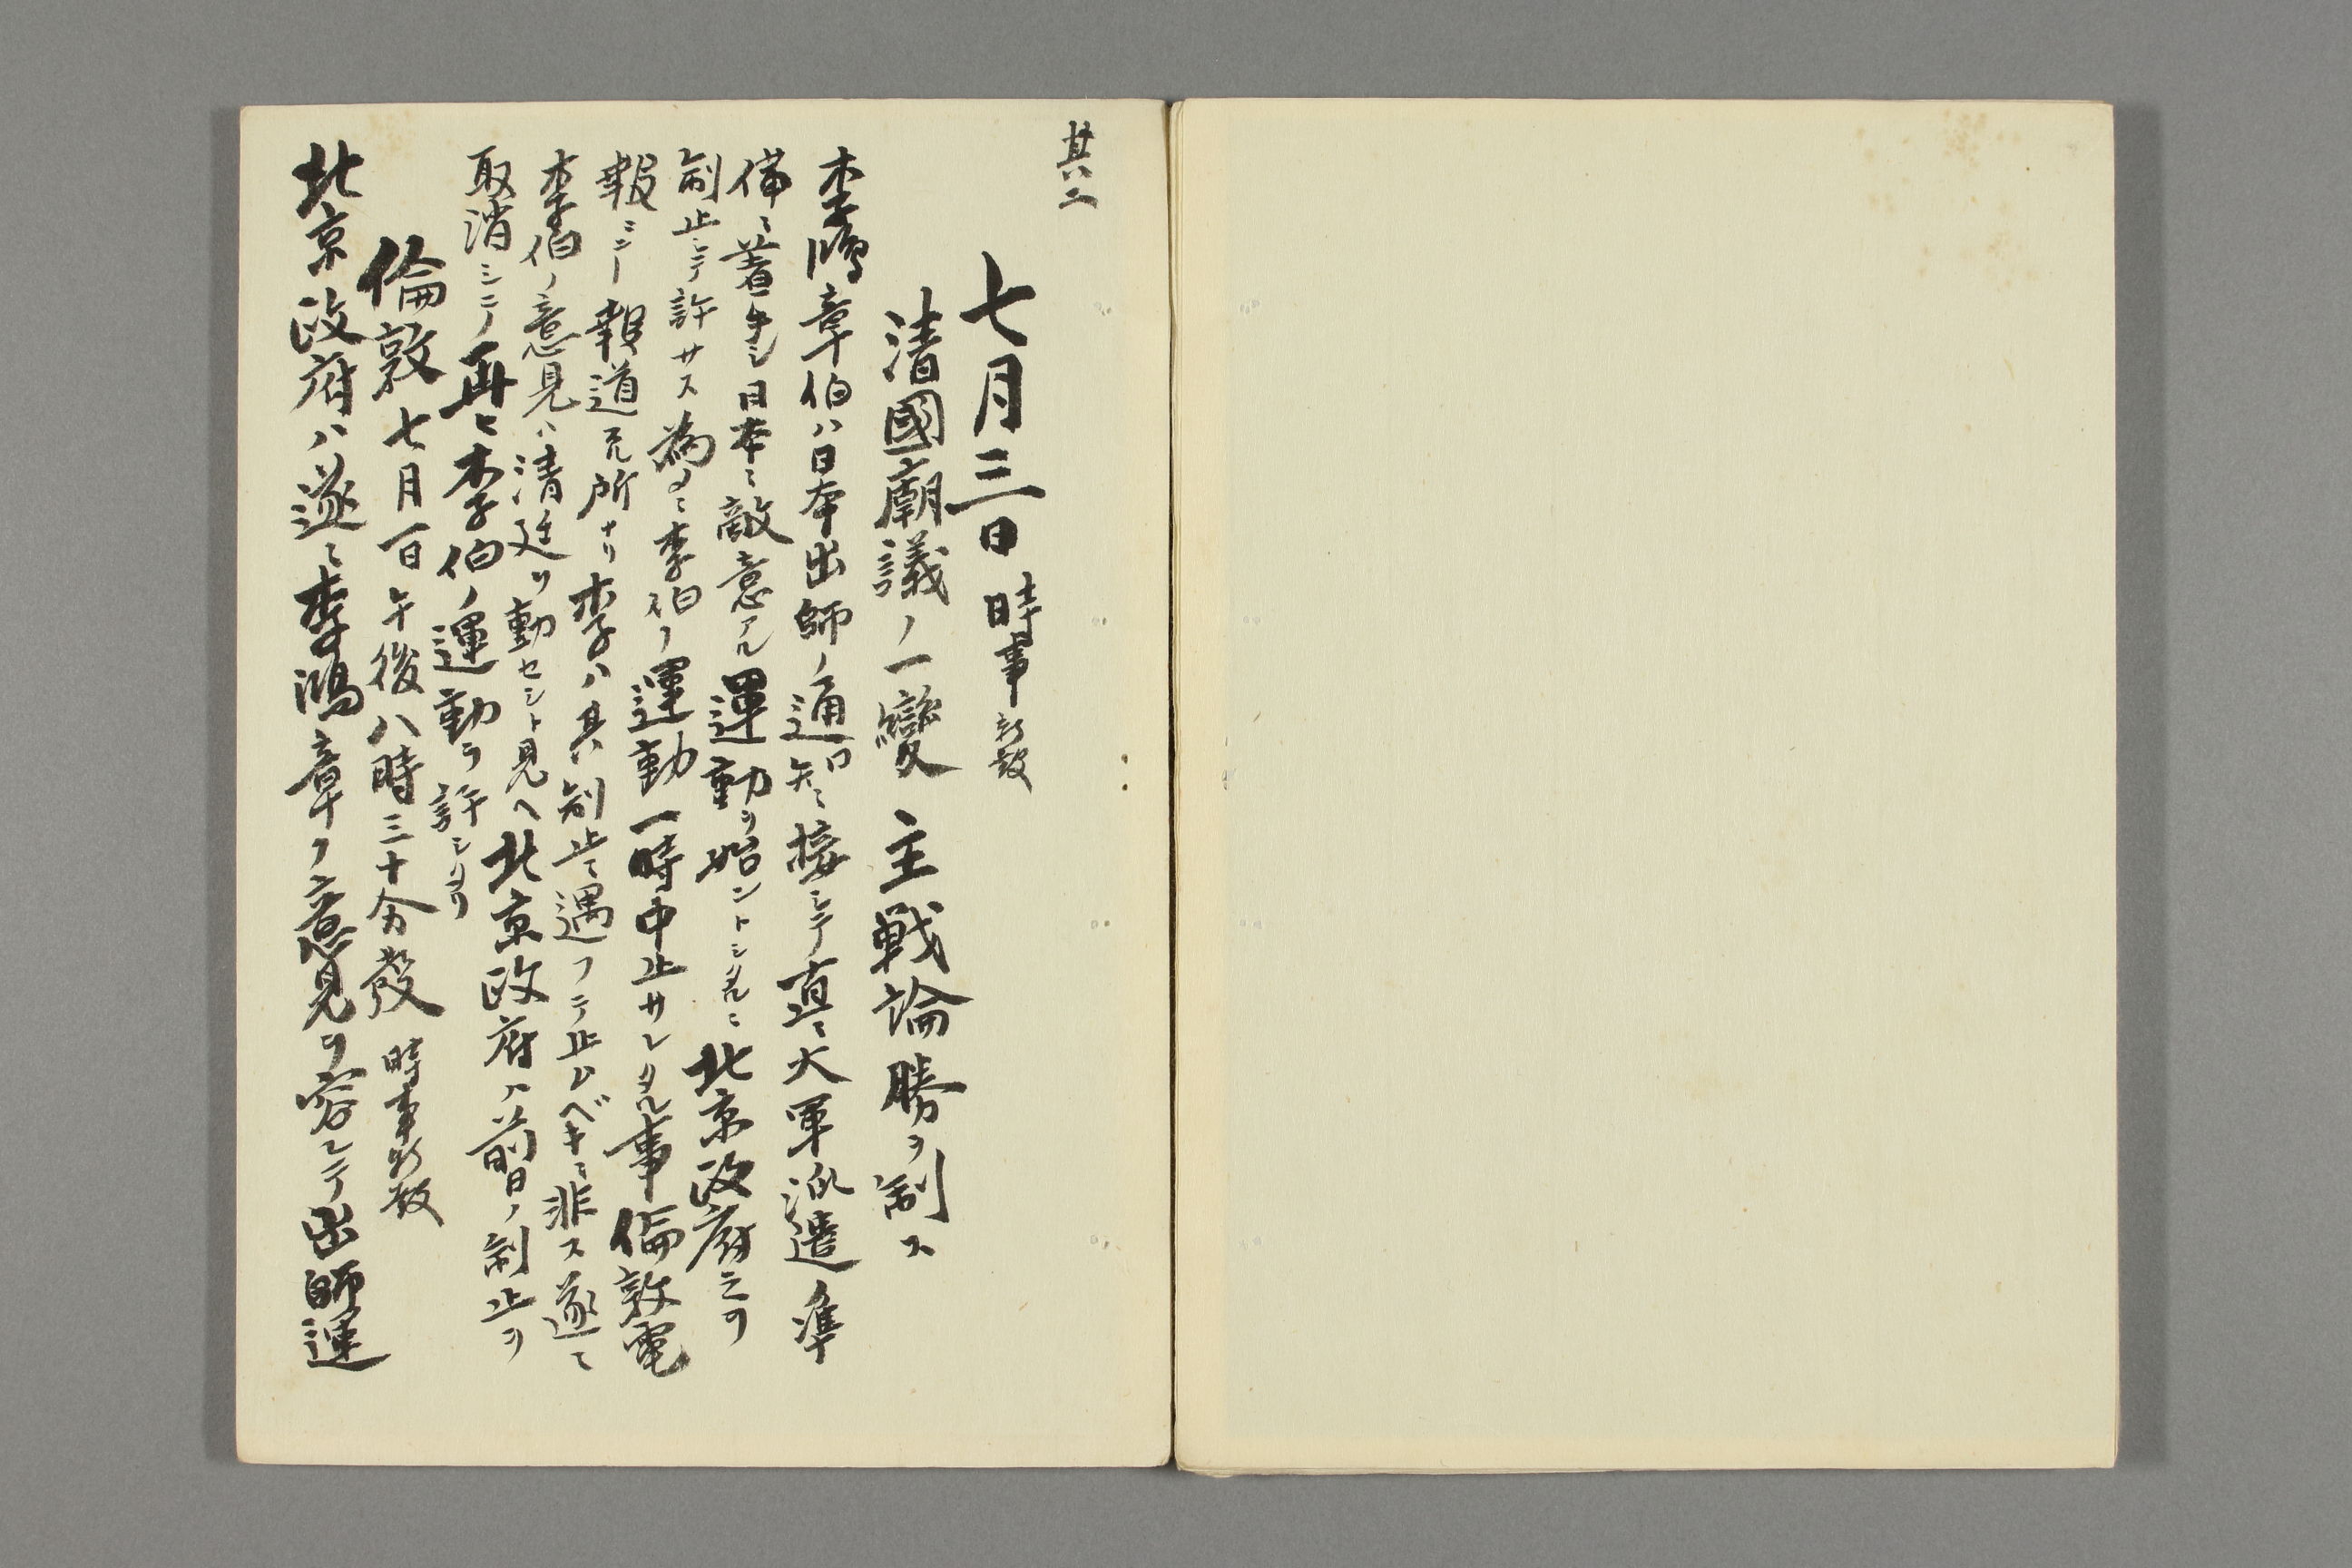 其二
七月三日 時事新報
清國廟議ノ一變 主戰論勝ヲ制ス
李鴻章伯ハ日本出師ノ通知ニ接シテ直ニ大軍派遣ノ準
備ニ著手シ日本ニ敵意アル運動ヲ始ントシタルニ北京政府之ヲ
制止シテ許サス為メニ李伯ノ運動一時中止サレタル事倫敦電
報ニテ報道 所ナリ李ハ其制止ニ遇フテ止ムベキニ非ス遂ニ
李伯ノ意見ハ清廷ヲ動セシト見ヘ北京政府ハ前日ノ制止ヲ
取消シテ再ヒ李伯ノ運動ヲ許シタリ
倫敦七月一日午後八時三十分發 時事新報
北京政府ハ遂ニ李鴻章ノ意見ヲ容レテ出師運